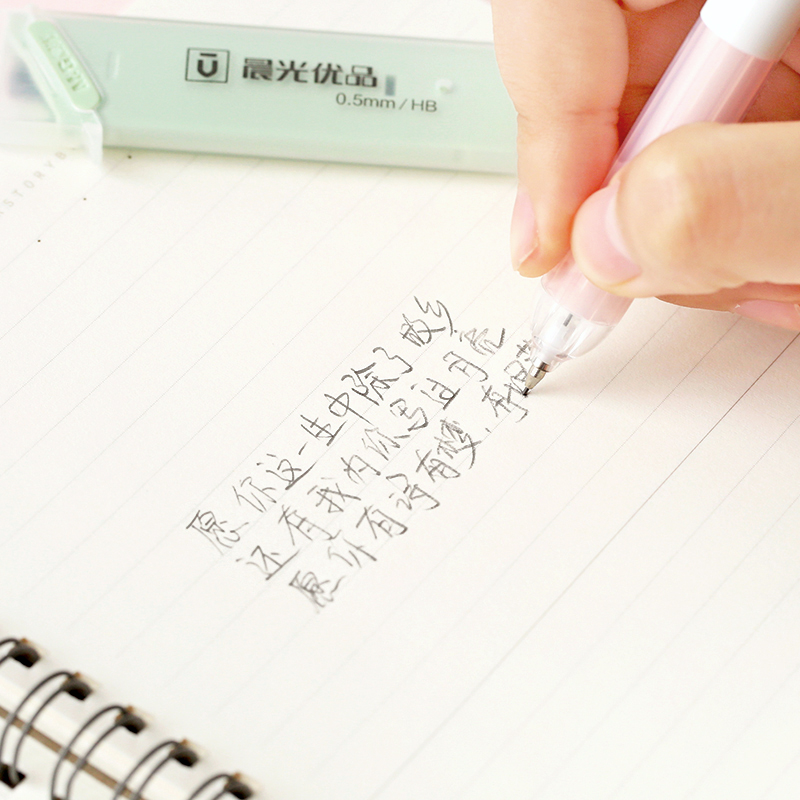 晨光优品
0.5mm/HB
愿你这一生中除了故乡
还有我为你写过月亮
愿你有诗有梦,有坦荡